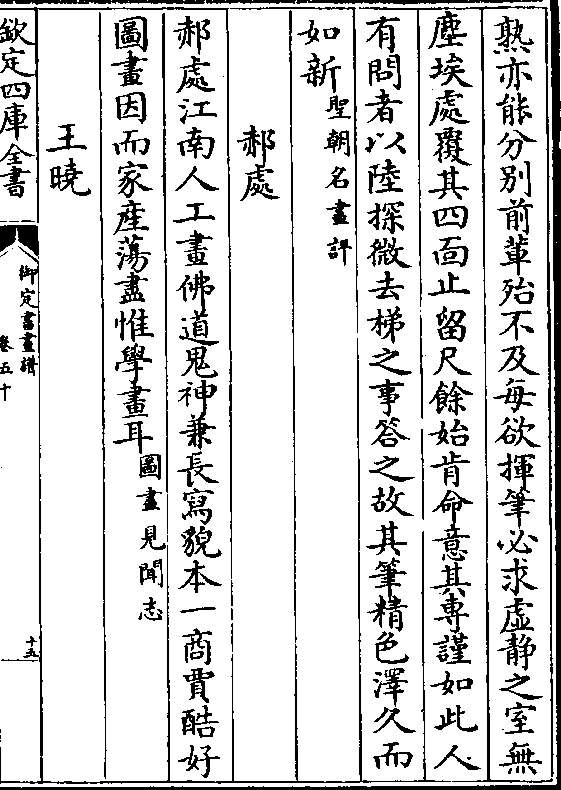 熟亦能分別前輩殆不及每欲揮筆必求虛静之室無
塵埃處覆其四面止留尺餘始肯命意其專謹如此人
有問者以陸探微去梯之事答之故其筆精色澤久而
如新聖朝名畫評
郝處
郝處江南人工畫佛道鬼神兼長寫貌本一商賈酷好
圖畫因而家産蕩盡惟學畫耳圖畫見聞志
王曉
欽定四庫全書
御定書畫譜
卷五十
十五